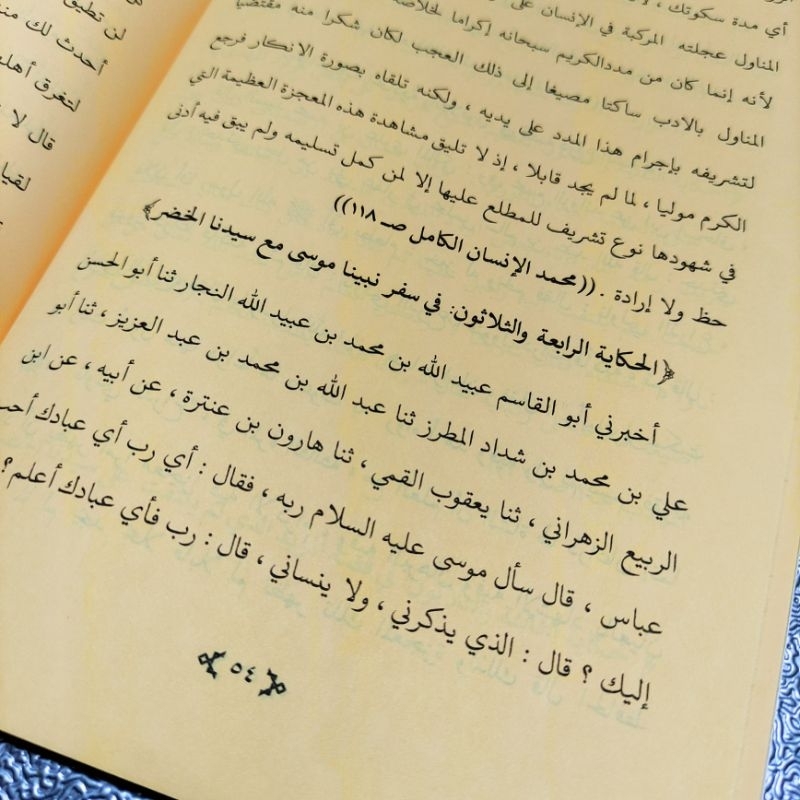 أي مدة سكوتك ،
المناول عجلته المركبة في الإنسان على
لأنه إنما كان من مددالكريم سبحانه إكراما لخلاصة
المناول بالادب ساكتا مصيغا إلى ذلك العجب لكان شكرا منه مقتضيا
لتشريفه بإجرام هذا المدد على يديه ، ولكنه تلقاه بصورة الانكار فرجع
الكرم موليا ، لما لم يجد قابلا ، إذ لا تليق مشاهدة هذه المعجزة العظيمة التي
في شهودها نوع تشريف للمطلع عليها إلا لمن كمل تسليمه ولم يبق فيه أدنى
حظ ولا إرادة . ((محمد الإنسان الكامل صـ ١١٨))
﴿الحكاية الرابعة والثلاثون: في سفر نبينا موسى مع سيدنا الخضر﴾
أخبرني أبو القاسم عبيد الله بن محمد بن عبيد الله النجار ثنا أبو الحسن
علي بن محمد بن شداد المطرز ثنا عبد الله بن محمد بن عبد العزيز ، ثنا أبو
الربيع الزهراني ، ثنا يعقوب القمي ، ثنا هارون بن عنترة ، عن أبيه ، عن ابن
عباس ، قال سأل موسى عليه السلام ربه ، فقال : أي رب أي عبادك أحب
إليك ؟ قال : الذي يذكرني ، ولا ينساني ، قال : رب فأي عبادك أعلم؟
٥٤
لن تطيق
أحدث لك منه
لتغرق أهلها
قال لا